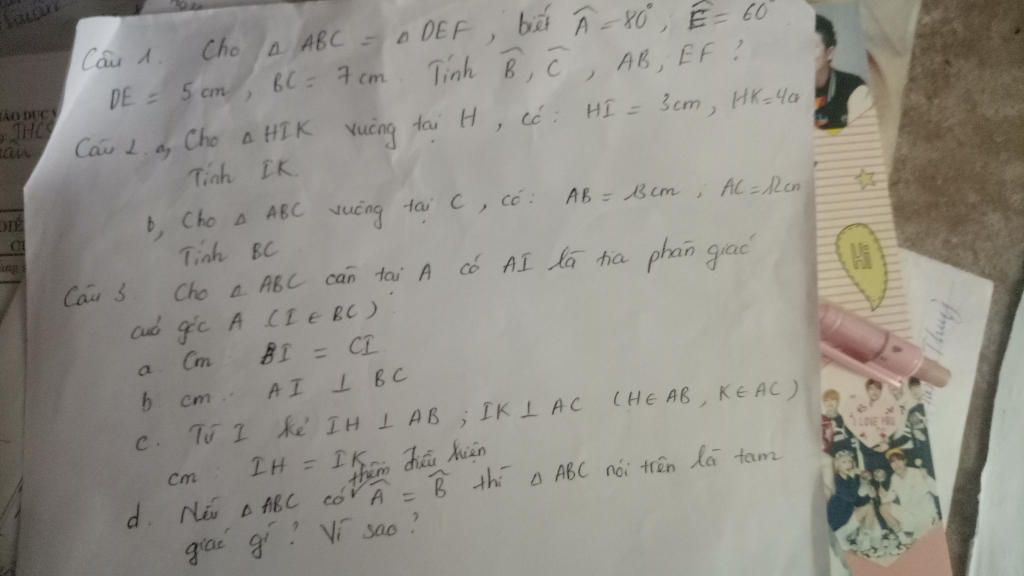 Câu 1. Cho △ ABC = △ DEF, biết Â = 80°, Ê = 60°
DE = 5 cm, BC = 7 cm. Tính B̂, Ĉ, AB, EF ?
Câu 2. a, Cho △ HIK vuông tại H, có: HI = 3cm, HK=4c
Tính IK.
b, Cho △ ABC vuông tại C, có: AB = 13cm; AC=12cm
Tính BC
Câu 3. Cho △ ABC cân tại A có AI là tia phân giác
của góc A (I ∈ BC).
a. Cm BI = CI
b cm: AI ⊥ BC
c. Từ I kẻ IH ⊥ AB ; IK ⊥ AC (H∈ AB, K∈ AC)
cm: IH = IK
thêm điều kiện
d. Nếu △ ABC có Â = B̂ thì △ ABC nói trên là tam
giác gì? Vì sao?
I LOVE YOU
Thùy